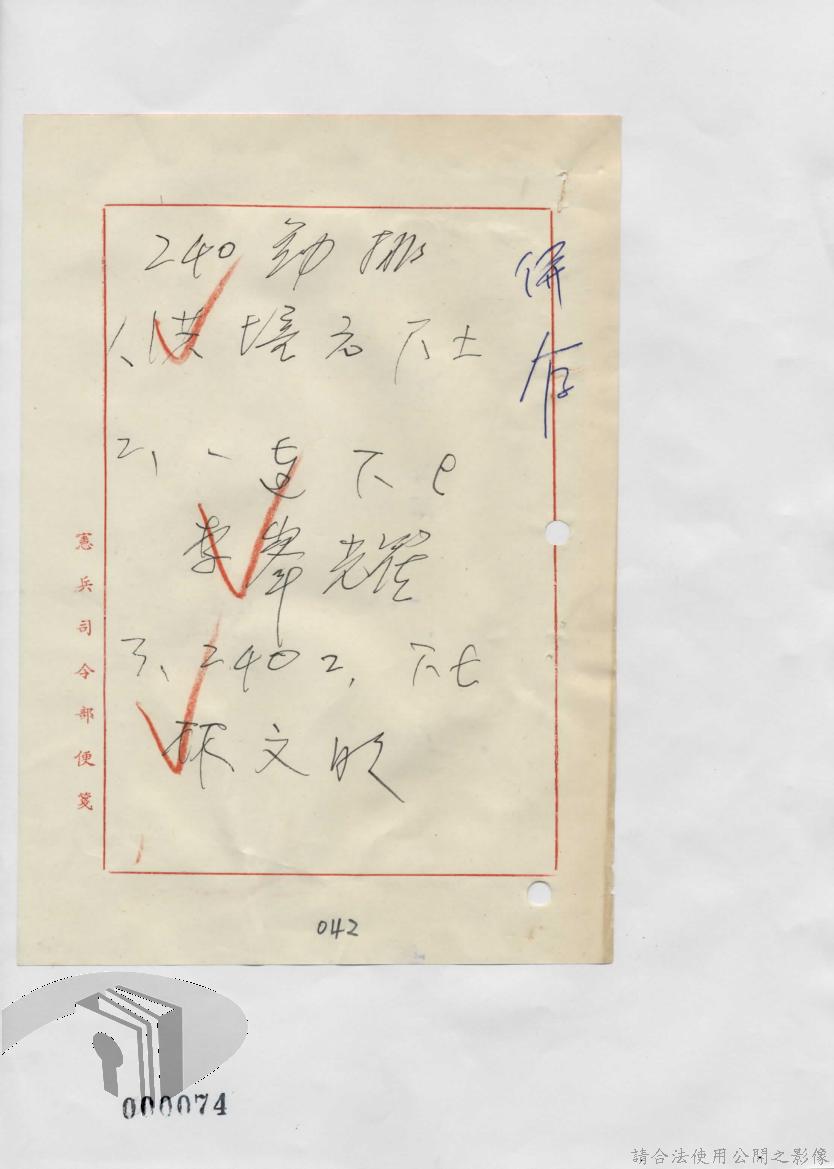 240 勤排
1、洪境志下士
2、一連下士
李峯耀
3、240 2,下士
林文明
併存
憲兵司令部便箋
042
000074
請合法使用公開之影像